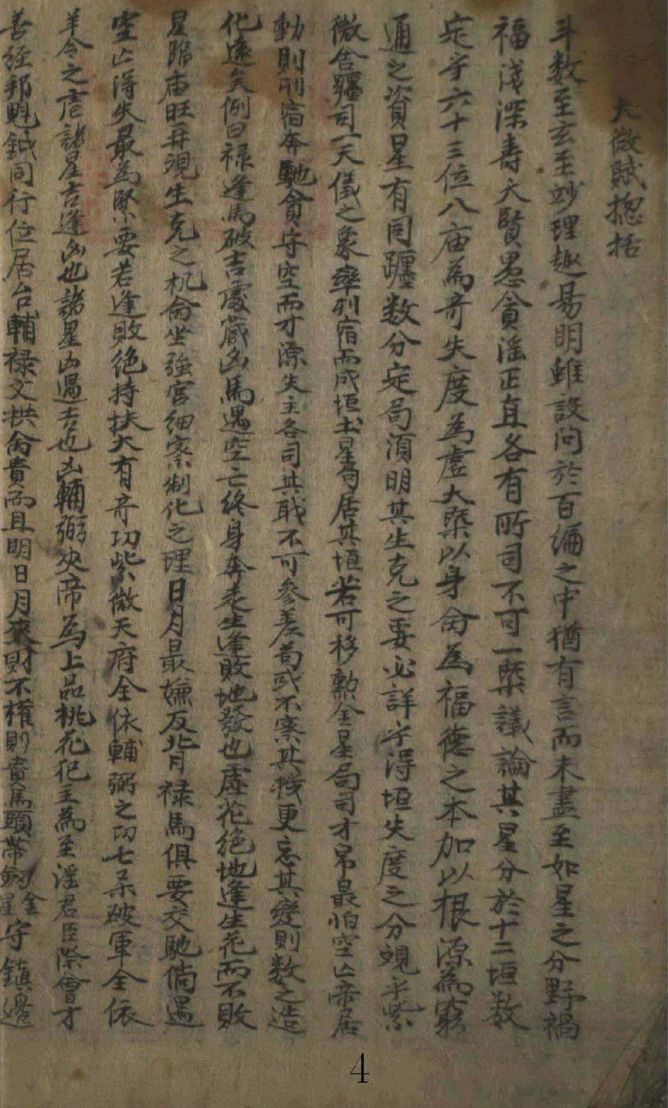 太微賦揔括
斗数至玄至妙理趣易明雖設问於百编之中猶有言而未盡至如星之分野禍
福淺深壽夭賢愚貧淫正直各有所司不可一槩議論其星分於十二垣数
定乎六十三位八庙為奇失度為虚大槩以身命為福德之本加以根源為窮
通之資星有同躔数分定局須明其生克之要必詳乎得垣失度之分观乎紫
微舍躔司一天儀之象率列宿而成垣土星苟居其垣若可移動金星局司才帛最怕空亡帝居
動則列宿奔馳貪守空而才源失主各司其职不可参差苟或不察其机更忘其變則数之造
化遠矣例曰禄逢馬破吉處蔵凶馬遇空亡终身奔走生逢敗地發也虚花绝地逢生花而不敗
星臨庙旺再观生克之机命坐強宮细察制化之理日月最嫌反背禄馬俱要交馳倘遇
空亡得失最為緊要若逢敗绝持扶大有奇功紫微天府全依輔弼之功七杀破軍全依
羊令之虐諸星吉逢凶也諸星凶遇吉也凶輔弼夾帝為上品桃花犯主為至淫君臣際會才
善经邦魁鉞同行位居台輔禄文拱命貴而且明日月夾財不權則貴馬頭帶劍金星守鎮邊
4